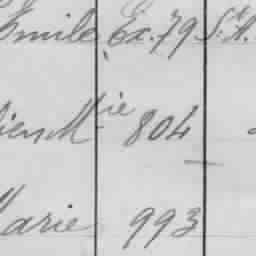 Emile Ex. 79 St. H.
ien Mie 804
Marie 993